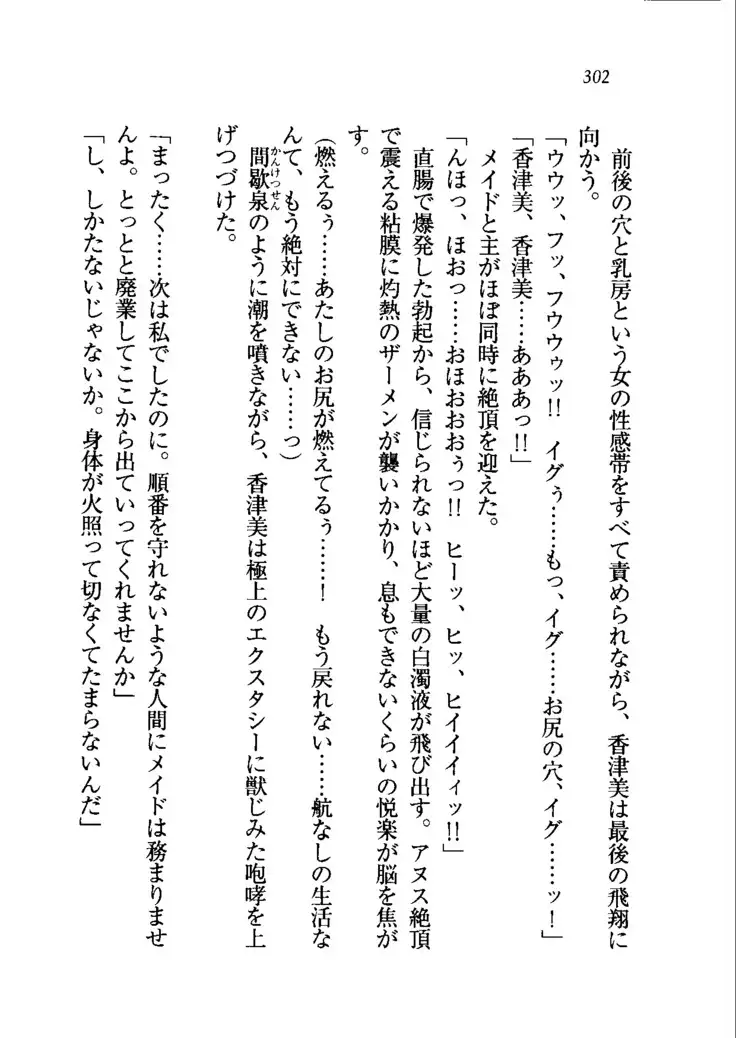 302
前後の穴と乳房という女の性感帯をすべて責められながら、香津美は最後の飛翔に
向かう。
「ウウッ、フッ、フウウゥッ!! イグぅ……もっ、イグ……お尻の穴、イグ……ッ！」
「香津美、香津美……あああっ!!」
メイドと主がほぼ同時に絶頂を迎えた。
「んほっ、ほおっ……おほおおぉっ!! ヒーッ、ヒッ、ヒイイイィッ!!」
直腸で爆発した勃起から、信じられないほど大量の白濁液が飛び出す。アヌス絶頂
で震える粘膜に灼熱のザーメンが襲いかかり、息もできないくらいの悦楽が脳を焦が
す。
（燃えるぅ……あたしのお尻が燃えてるぅ……！ もう戻れない……航なしの生活な
んて、もう絶対にできない……っ）
間歇泉のように潮を噴きながら、香津美は極上のエクスタシーに獣じみた咆哮を上
かんけつせん
げつづけた。
「まったく……次は私でしたのに。順番を守れないような人間にメイドは務まりませ
んよ。とっとと廃業してここから出ていってくれませんか」
「し、しかたないじゃないか。身体が火照って切なくてたまらないんだ」